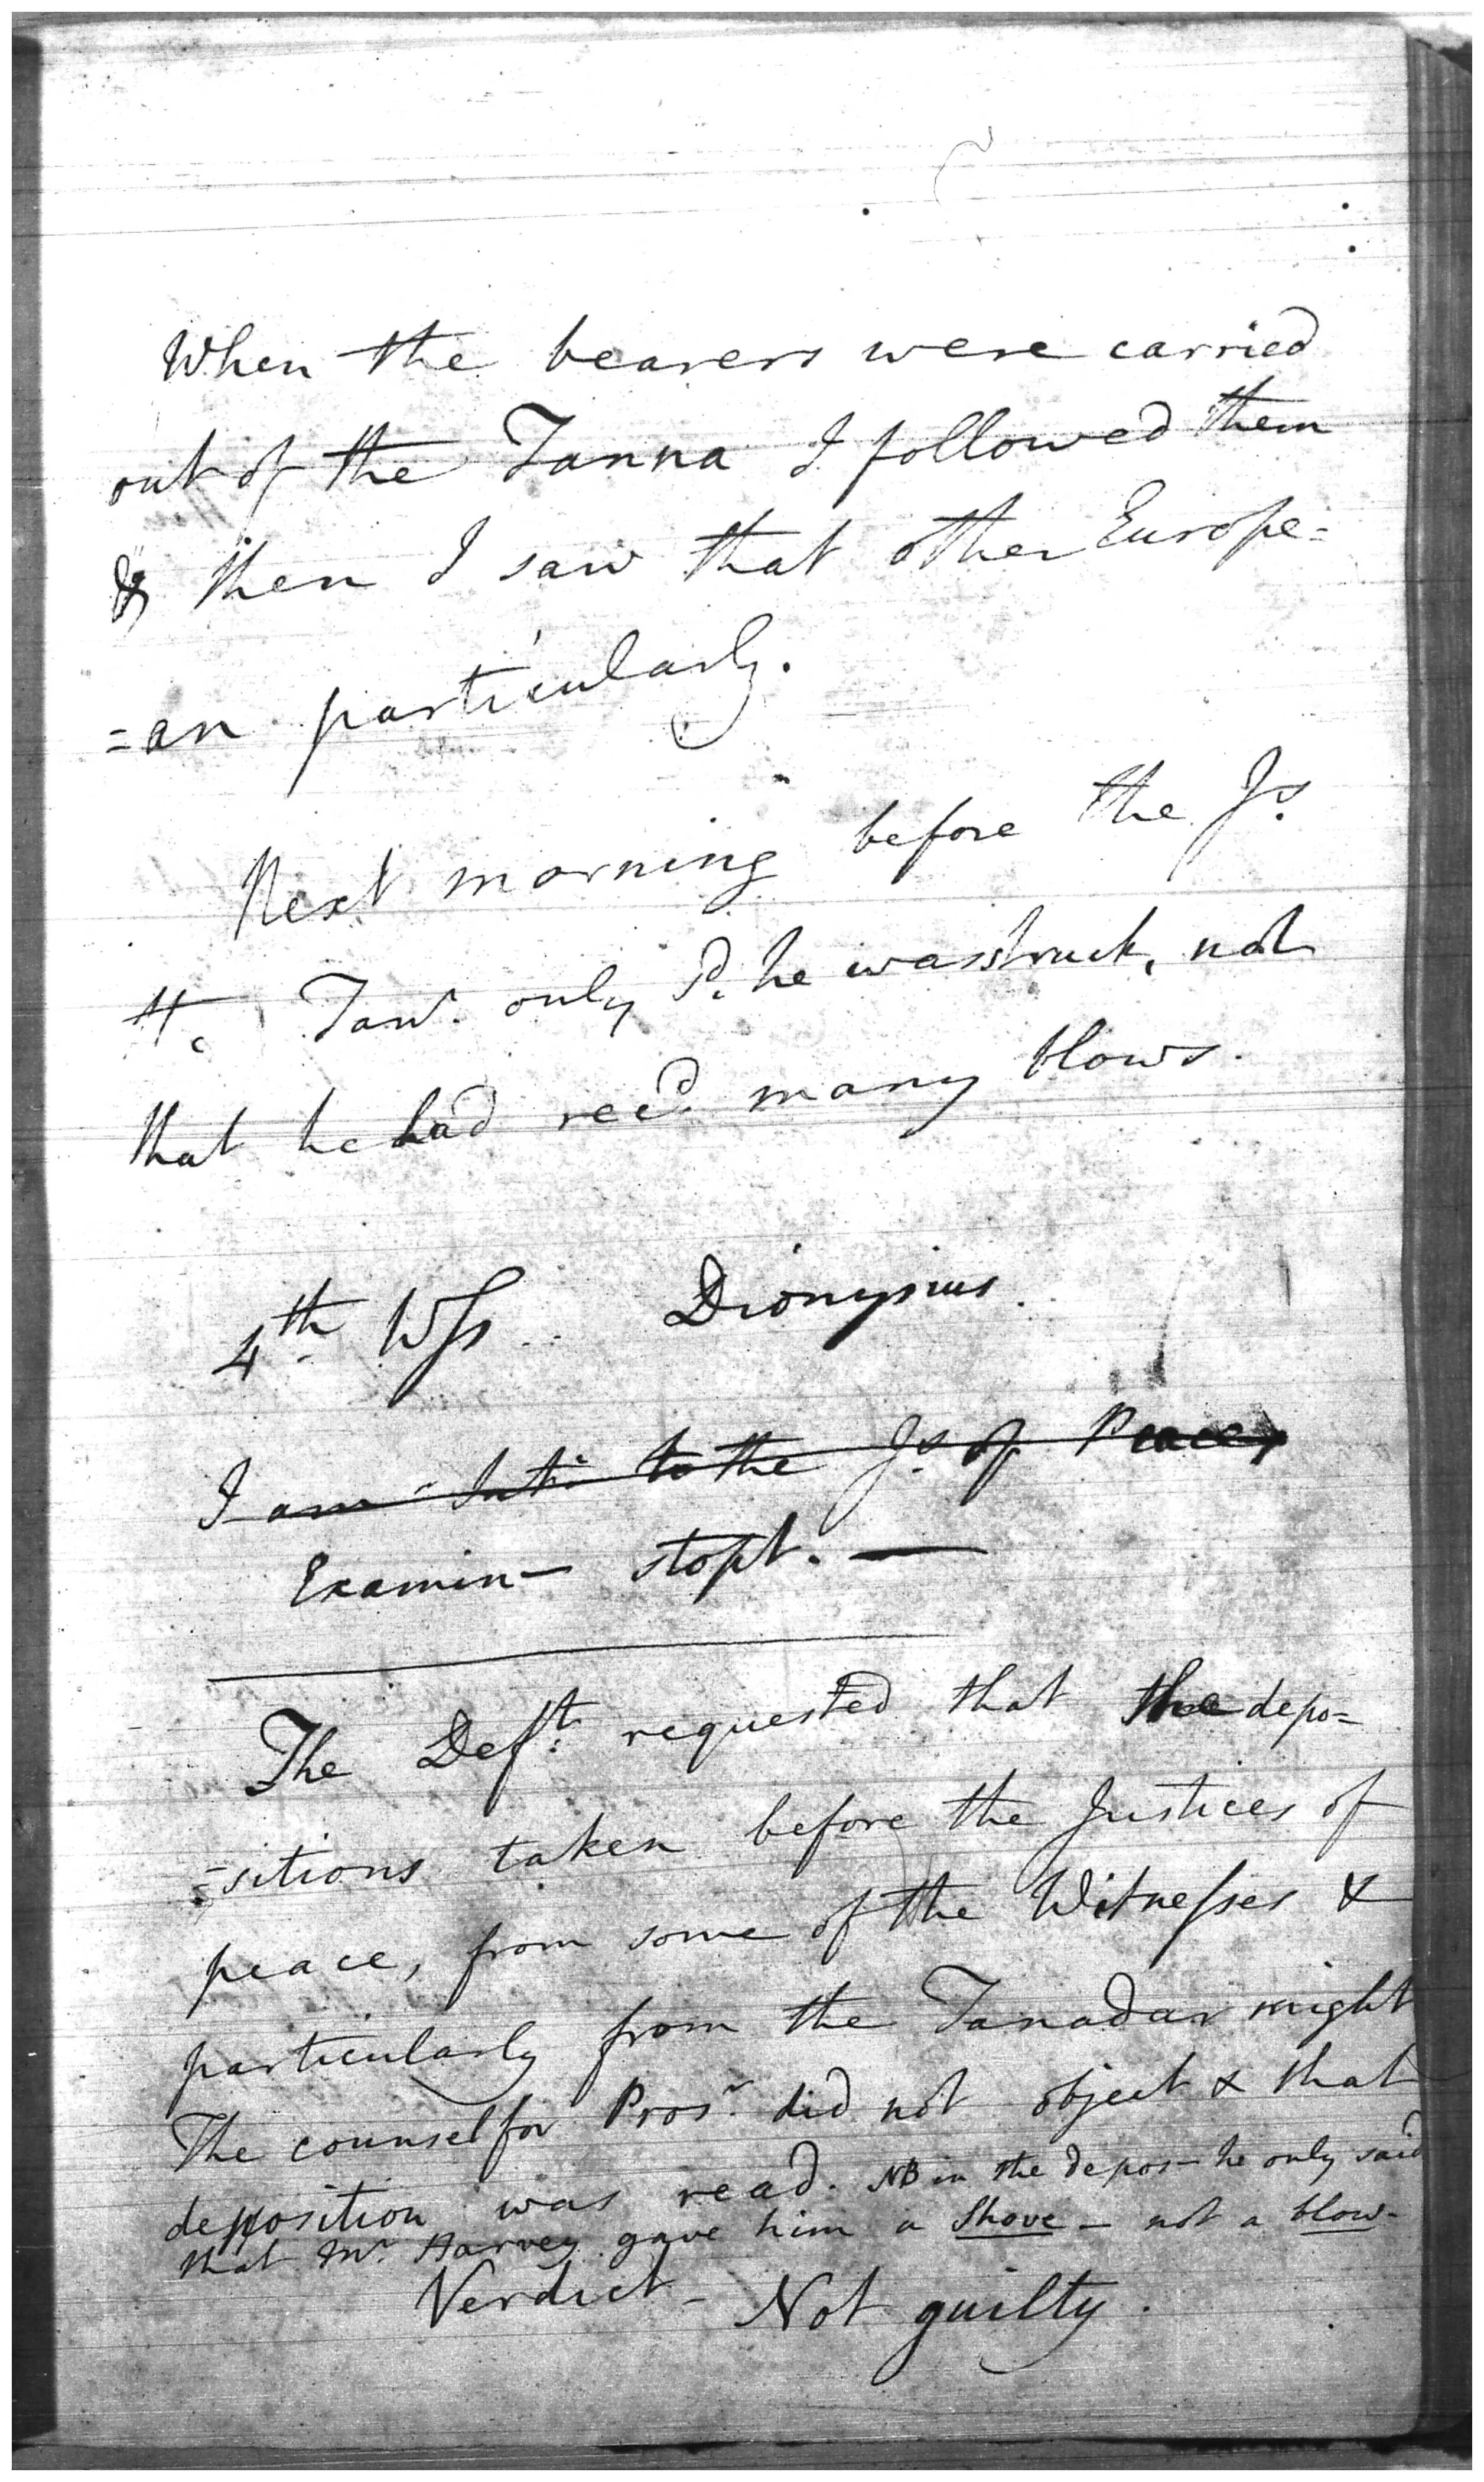 When the bearers were carried
out of the Tanna I followed them
& then I saw that other Europe=
=an particularly.
Next morning before the Js.
H. Tanr. only sd. he was struck, not
that he had recd. many blows.
4th Wss Dionysius.
I am Intr. to the Js. of Peace,
Examin— stopt. —
The Deft. requested that the depo=
=sitions taken before the Justices of
peace, from some of the Witnesses &
particularly from the Tanadar might
The counsel for Prosr. did not object & that
deposition was read. NB in the depos— he only said
that Mr. Harvey gave him a Shove — not a blow—
Verdict — Not guilty.